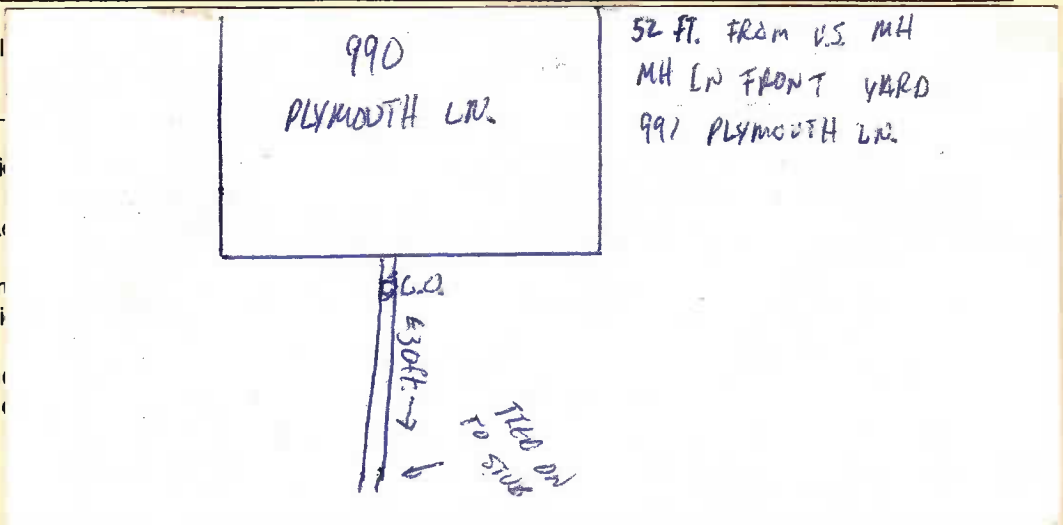 990
PLYMOUTH LN.
52 FT. FROM U.S. MH
MH IN FRONT YARD
991 PLYMOUTH LN.
C.O.
←30ft.→
TIED ON
TO STUB